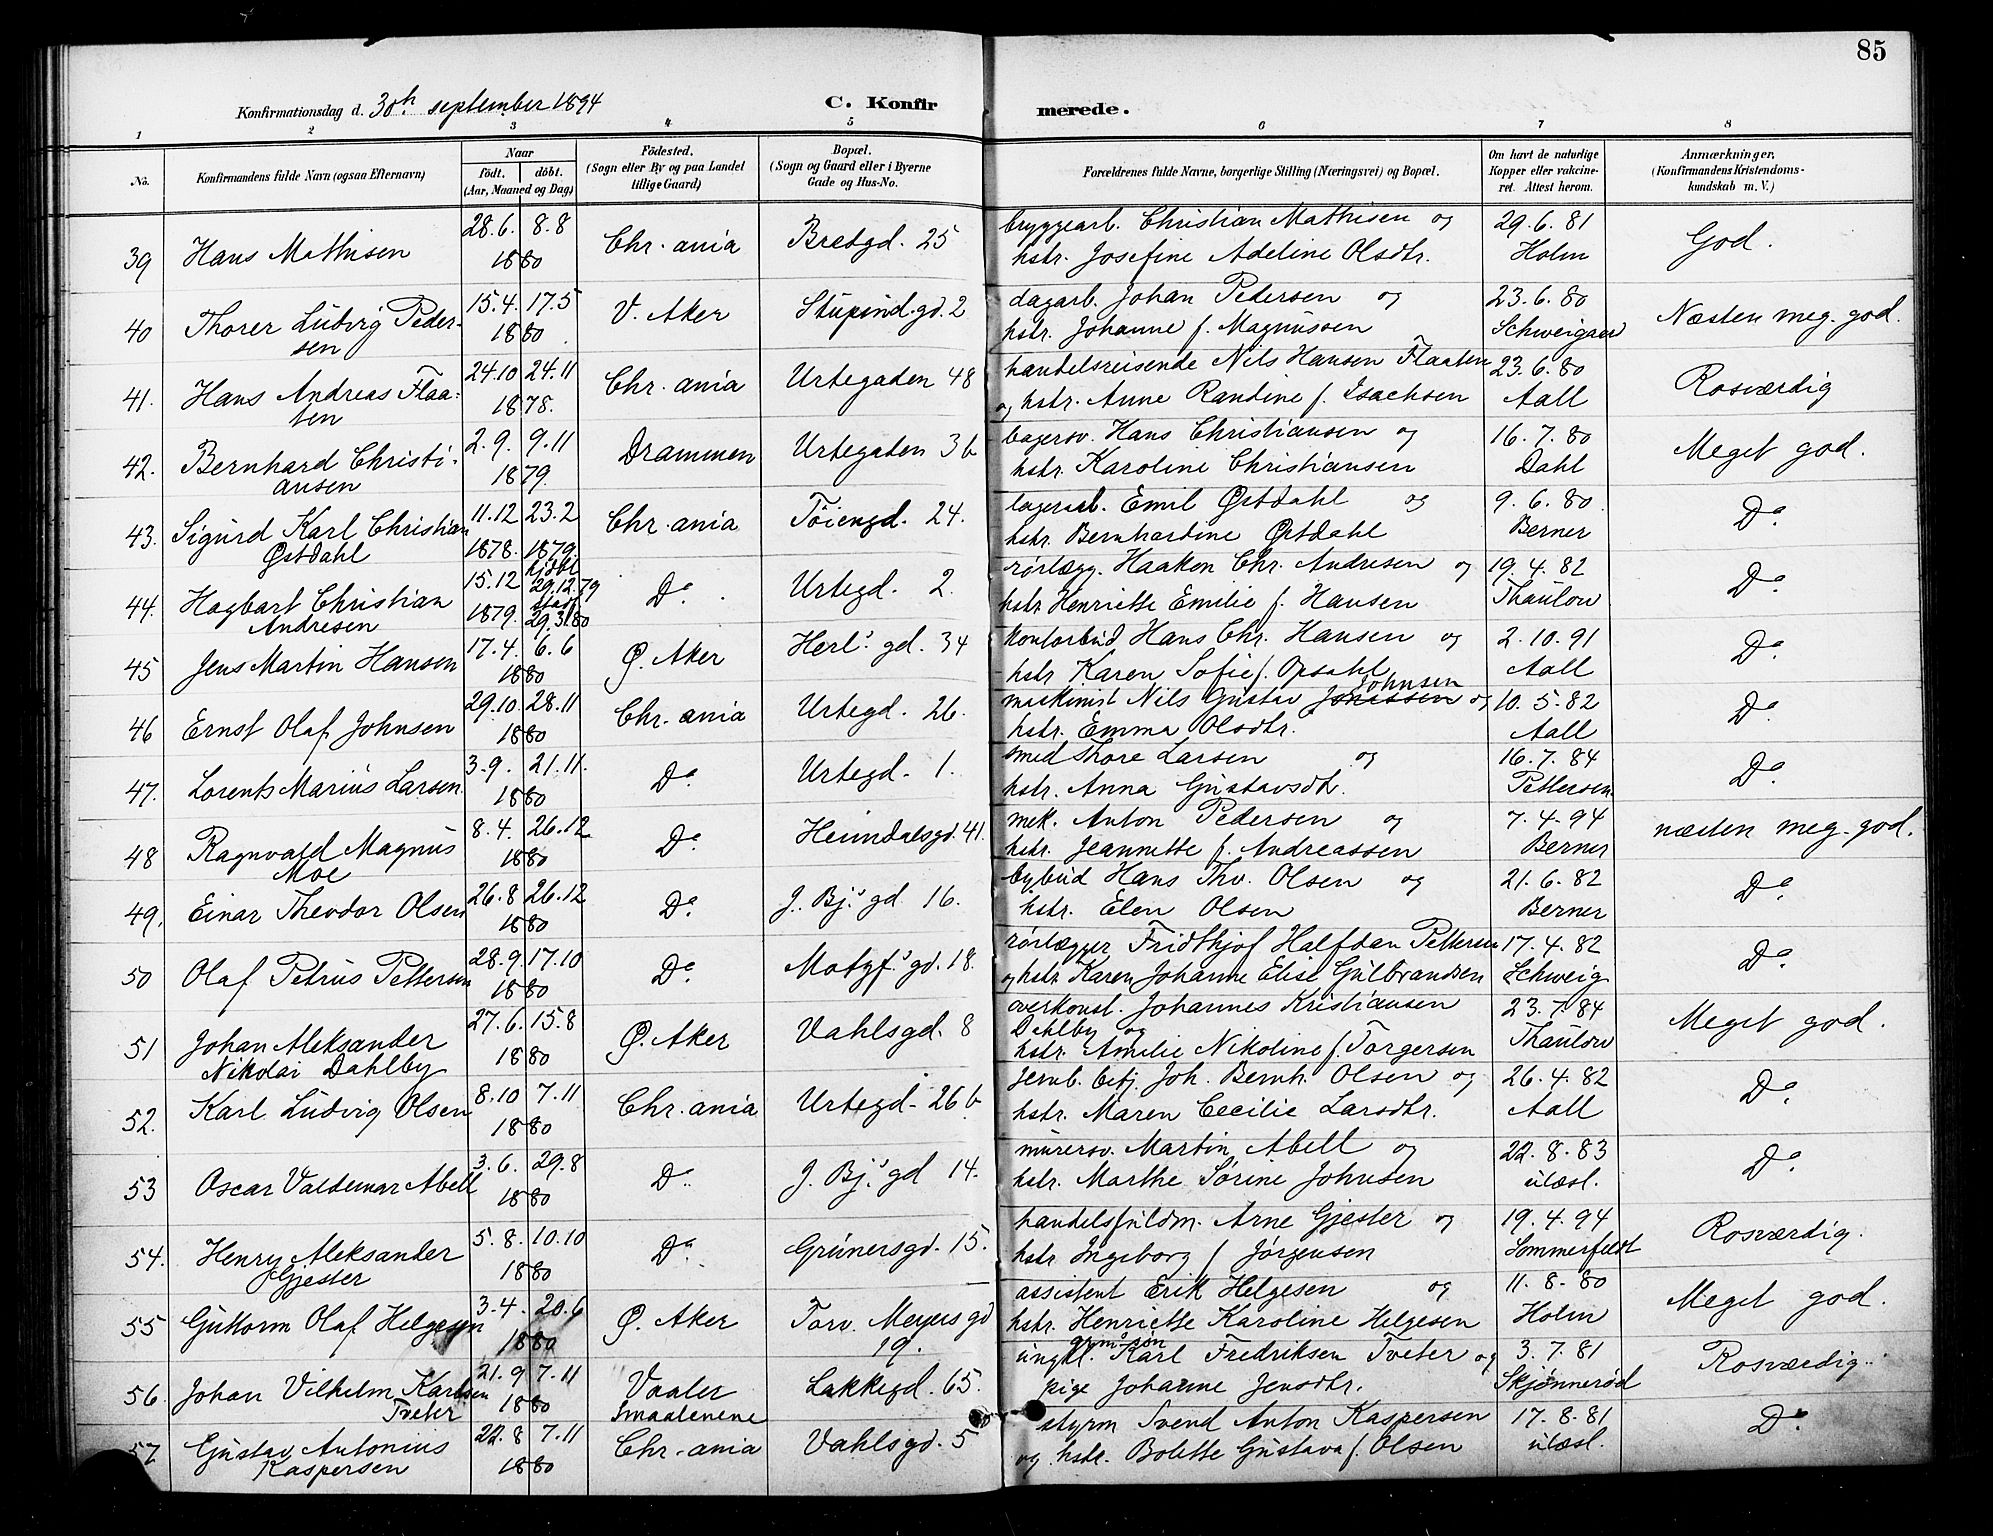 85
Konfirmationsdag d. 30th september 1894 C. Konfirmerede.
1 2 3 4 5 6 7 8
No. Konfirmandens fulde Navn (ogsaa Efternavn) Naar født. døbt. (Aar, Maaned og Dag) Fødested. (Sogn eller By og paa Landet tillige Gaard) Bopæl. (Sogn og Gaard eller i Byerne Gade og Hus-No. Forældrenes fulde Navne, borgerlige Stilling (Næringsvei) og Bopæl. Om havt de naturlige Kopper eller vakcineret. Attest herom. Anmærkninger, (Konfirmandens Kristendomskundskab m. V.)
28.6. 8.8 bryggearb. Christian Mathisen og 29.6.81
39 Hans Mathisen 1880 Chr.ania Bredgd. 25 hstr. Josefine Adeline Olsdtr. Holm God.
15.4. 17.5 dagarb. Johan Pedersen og 23.6.80
40 Thorer Ludvig Pedersen 1880 V. Aker Stupind.gd. 2 hstr. Johanne f. Magnussen Schweigaard Næsten meg. god.
24.10 24.11 handelsreisende Nils Hansen Flaaten 23.6.80
41. Hans Andreas Flaaten 1878. Chr.ania Urtegaden 48 og hstr. Anne Randine f. Isachsen Aall Rosværdig
2.9. 9.11 bagersv. Hans Christiansen og 16.7.80
42. Bernhard Christiansen 1879. Drammen Urtegaden 3b hstr. Karoline Christiansen Dahl Meget god.
11.12 23.2 lagerarb. Emil Østdahl og 9.6.80
43. Sigurd Karl Christian Østdahl 1878. 1879. Chr.ania Töiengd. 24. hstr. Bernhardine Østdahl Berner Do.
15.12 hjdbt 29.12.79 rörlægg. Haakon Chr. Andresen og 19.4.82
44. Hagbart Christian Andresen 1879. stad. 29.3.80 Do. Urtegd. 2. hstr Henriette Emilie f. Hansen Thaulow Do.
17.4. 6.6 kontorbud Hans Chr. Hansen og 2.10.91
45 Jens Martin Hansen 1880 Ø. Aker Herls gd. 34 hstr Karen Sofie f. Opsahl Aall Do.
29.10. 28.11 maskinist Nils Gustav Jonassen Johnsen og 10.5.82
46 Ernst Olaf Johnsen 1880 Chr.ania Urtegd. 26. hstr. Emma Olsdtr. Aall Do.
3.9. 21.11. smed Thore Larsen og 16.7.84
47. Lorents Marius Larsen 1880 Do. Urtegd. 1. hstr. Anna Gustavsdtr. Pettersen Do.
8.4. 26.12 mek. Anton Pedersen og 7.4.94
48 Ragnvald Magnus Moe 1880 Do. Heimdalsgd. 41. hstr. Jeannette f. Andreassen Berner næsten meg. god.
26.8 26.12 bybud Hans Thv. Olsen og 21.6.82
49. Einar Theodor Olsen 1880 Do. J. Bj.s gd 16. hstr. Elen Olsen Berner Do.
28.9. 17.10 rörlægger Fridthjof Halfdan Pettersen 17.4.82
50 Olaf Petrus Pettersen 1880 Do. Motzf.s gd. 18. og hstr Karen Johanne Elise Gulbrandsen Schweig. Do.
27.6. 15.8 overkonst. Johannes Kristiansen Dahlby og 23.7.84
51 Johan Aleksander Nikolai Dahlby 1880 Ø. Aker Vahlsgd. 8 hstr. Amalie Nikoline f. Torgersen Thaulow Meget god.
8.10 7.11 Jernb. betj. Joh. Bernh. Olsen og 26.4.82
52. Karl Ludvig Olsen 1880 Chr.ania Urtegd. 26b hstr. Maren Cecilie Larsdtr. Aall Do.
3.6. 29.8 murersv. Martin Abell og 22.8.83
53 Oscar Valdemar Abell 1880 Do. J. Bj.s gd 14. hstr. Marthe Sörine Johnsen ulæsl. Do.
5.8. 10.10 handelsfuldm. Arne Gjester og 19.4.94
54. Henry Aleksander Gjester 1880 Do. Grünersgd. 15. hstr Ingeborg f Jørgensen Sommerfeldt Rosværdig.
3.4. 20.6 assistent Erik Helgesen og 11.8.80
55 Guttorm Olaf Helgesen 1880 Ø. Aker Torv. Meyers gd 19. hstr. Henriette Karoline Helgesen Holm Meget god.
21.9 7.11 ungkl. grm. sön Karl Fredriksen Tveter og 3.7.81
56. Johan Vilhelm Karlsen Tveter 1880 Vaaler Smaalenene Lakkegd. 65. pige Johanne Jensdtr. Skjønnerød Rosværdig.
22.8 7.11 styrm Svend Anton Kaspersen 17.8.81
57 Gustav Antonius Kaspersen 1880 Chr.ania Vahlsgd. 5 og hstr. Bolette Gustava f. Olsen ulæsl. Do.